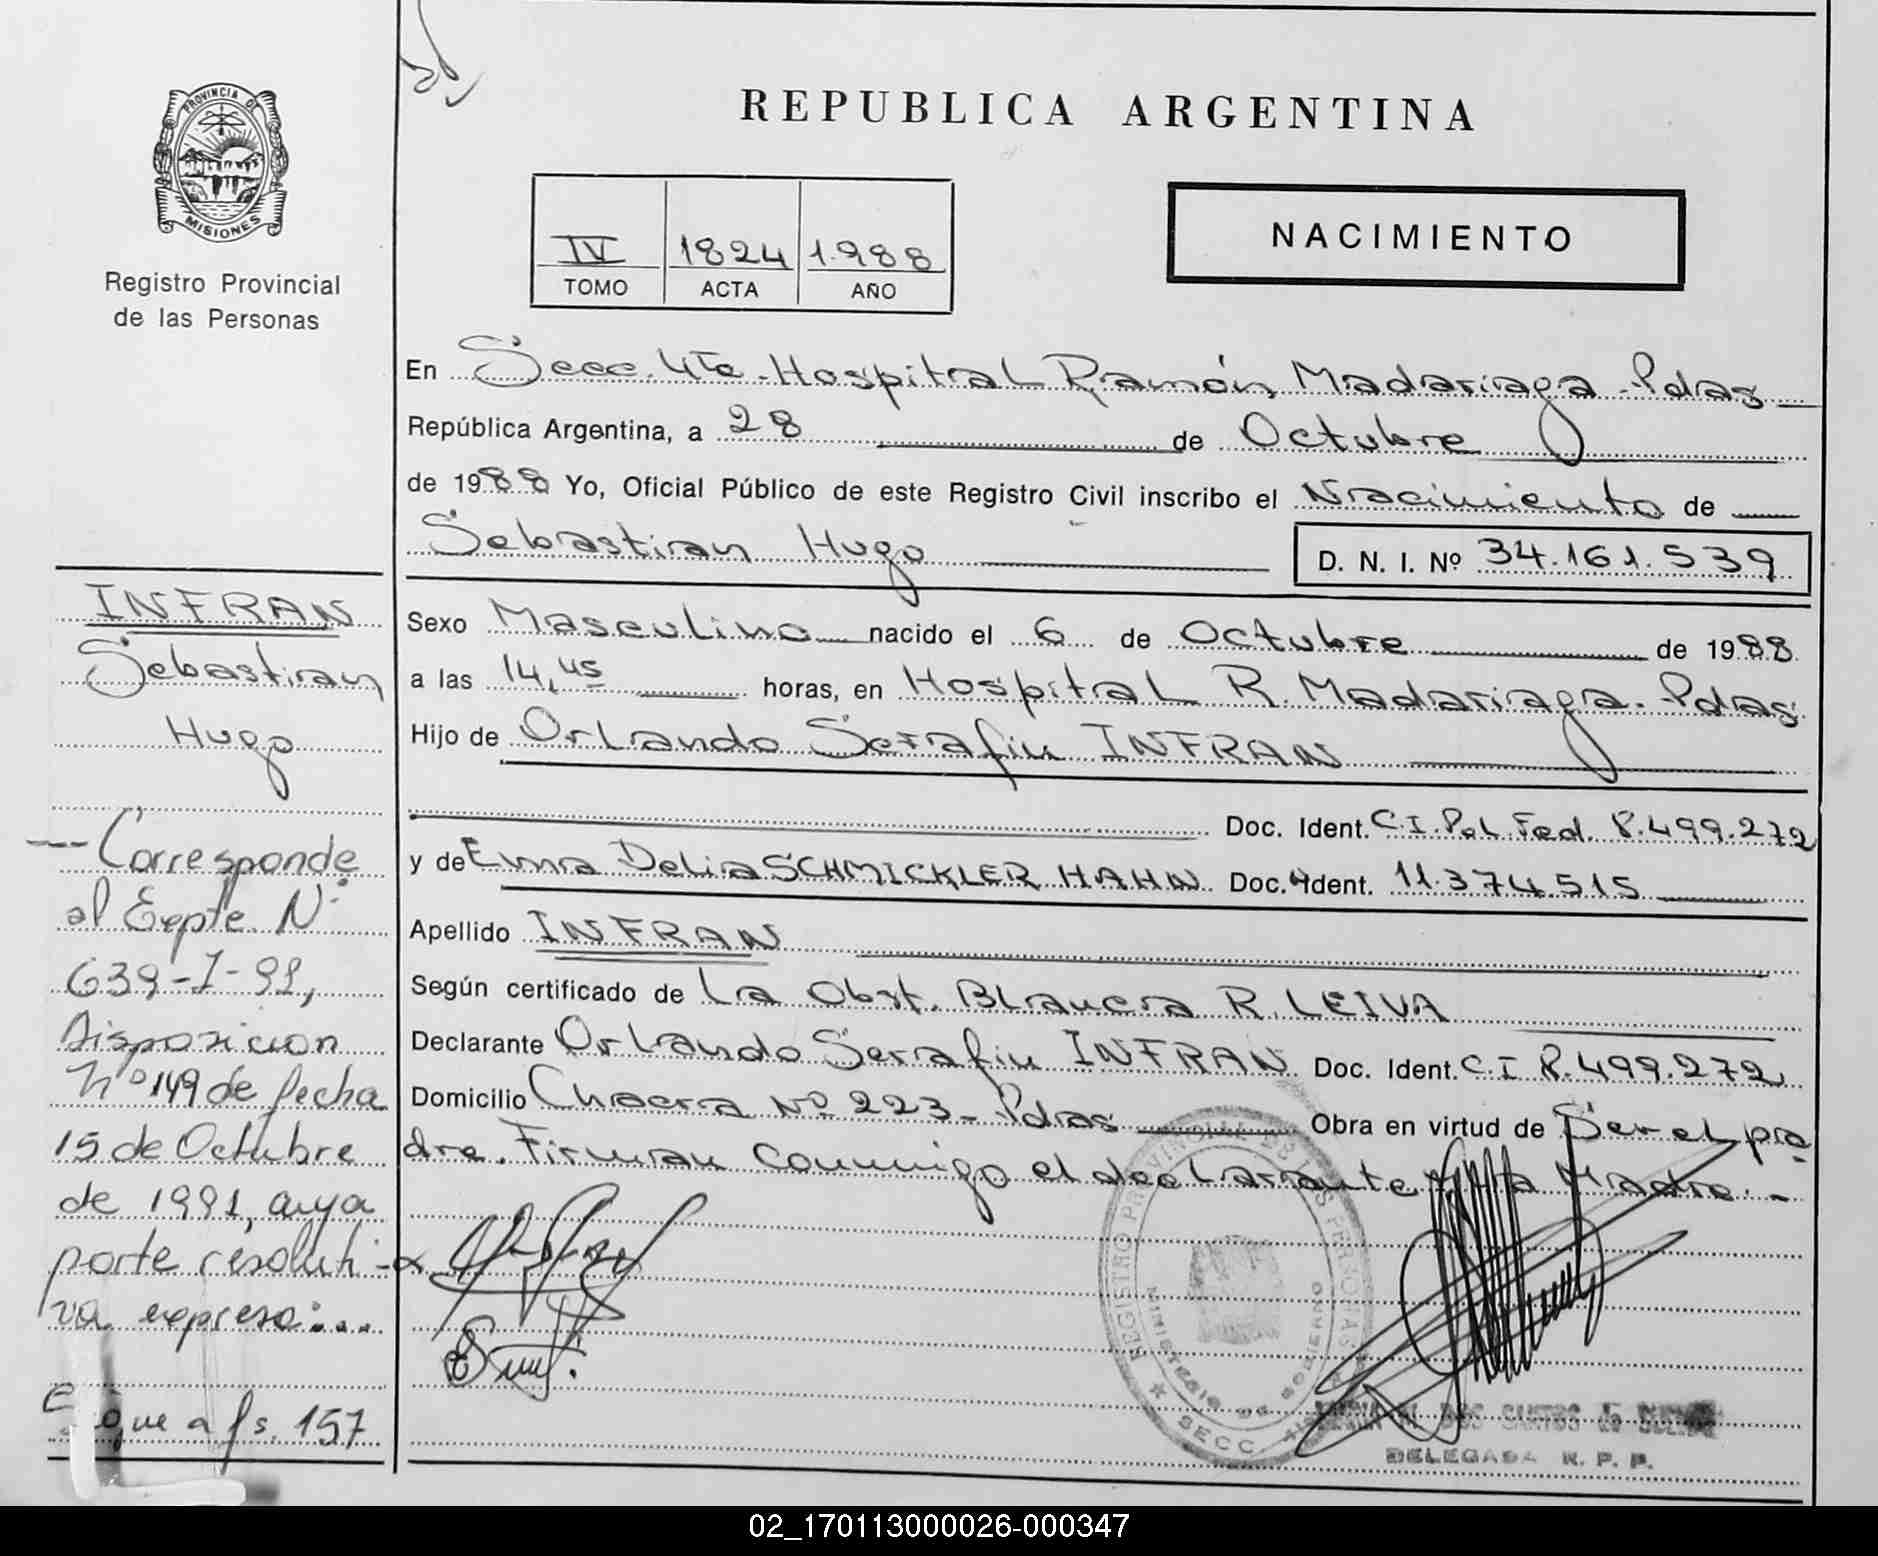 PROVINCIA DE
MISIONES
Registro Provincial
de las Personas
REPUBLICA ARGENTINA
IV 1824 1.988
TOMO ACTA AÑO
NACIMIENTO
En Secc. 4ta. Hospital Ramón Madariaga - Pdas
República Argentina, a 28 de Octubre
de 1988 Yo, Oficial Público de este Registro Civil inscribo el Nacimiento de
Sebastian Hugo
D. N. I. Nº 34.161.539
Sexo Masculino nacido el 6 de Octubre de 1988
a las 14,45 horas, en Hospital R. Madariaga. Pdas
Hijo de Orlando Serafin INFRAN
Doc. Ident. C.I. Pol. Fed. 8.499.272
y de Elma Delia SCHMICKLER HAHN Doc. Ident. 11.374.515
Apellido INFRAN
Según certificado de La Obst. Blanca R. LEIVA
Declarante Orlando Serafin INFRAN Doc. Ident. C.I 8.499.272
Domicilio Chacra Nº 223 - Pdas Obra en virtud de Ser el pa
dre. Firman Conmigo el declarante y la Madre. -
INFRAN
Sebastian
Hugo
-- Corresponde
al Expte. Nº
639-I-91,
Disposicion
Nº 149 de fecha
15 de Octubre
de 1991, cuya
parte resoluti-
va expresa:...
Sigue a fs. 157
REGISTRO PROVINCIAL DE LAS PERSONAS
MINISTERIO DE GOBIERNO
SECC.
DOS SANTOS
DELEGADA R. P. P.
02_170113000026-000347